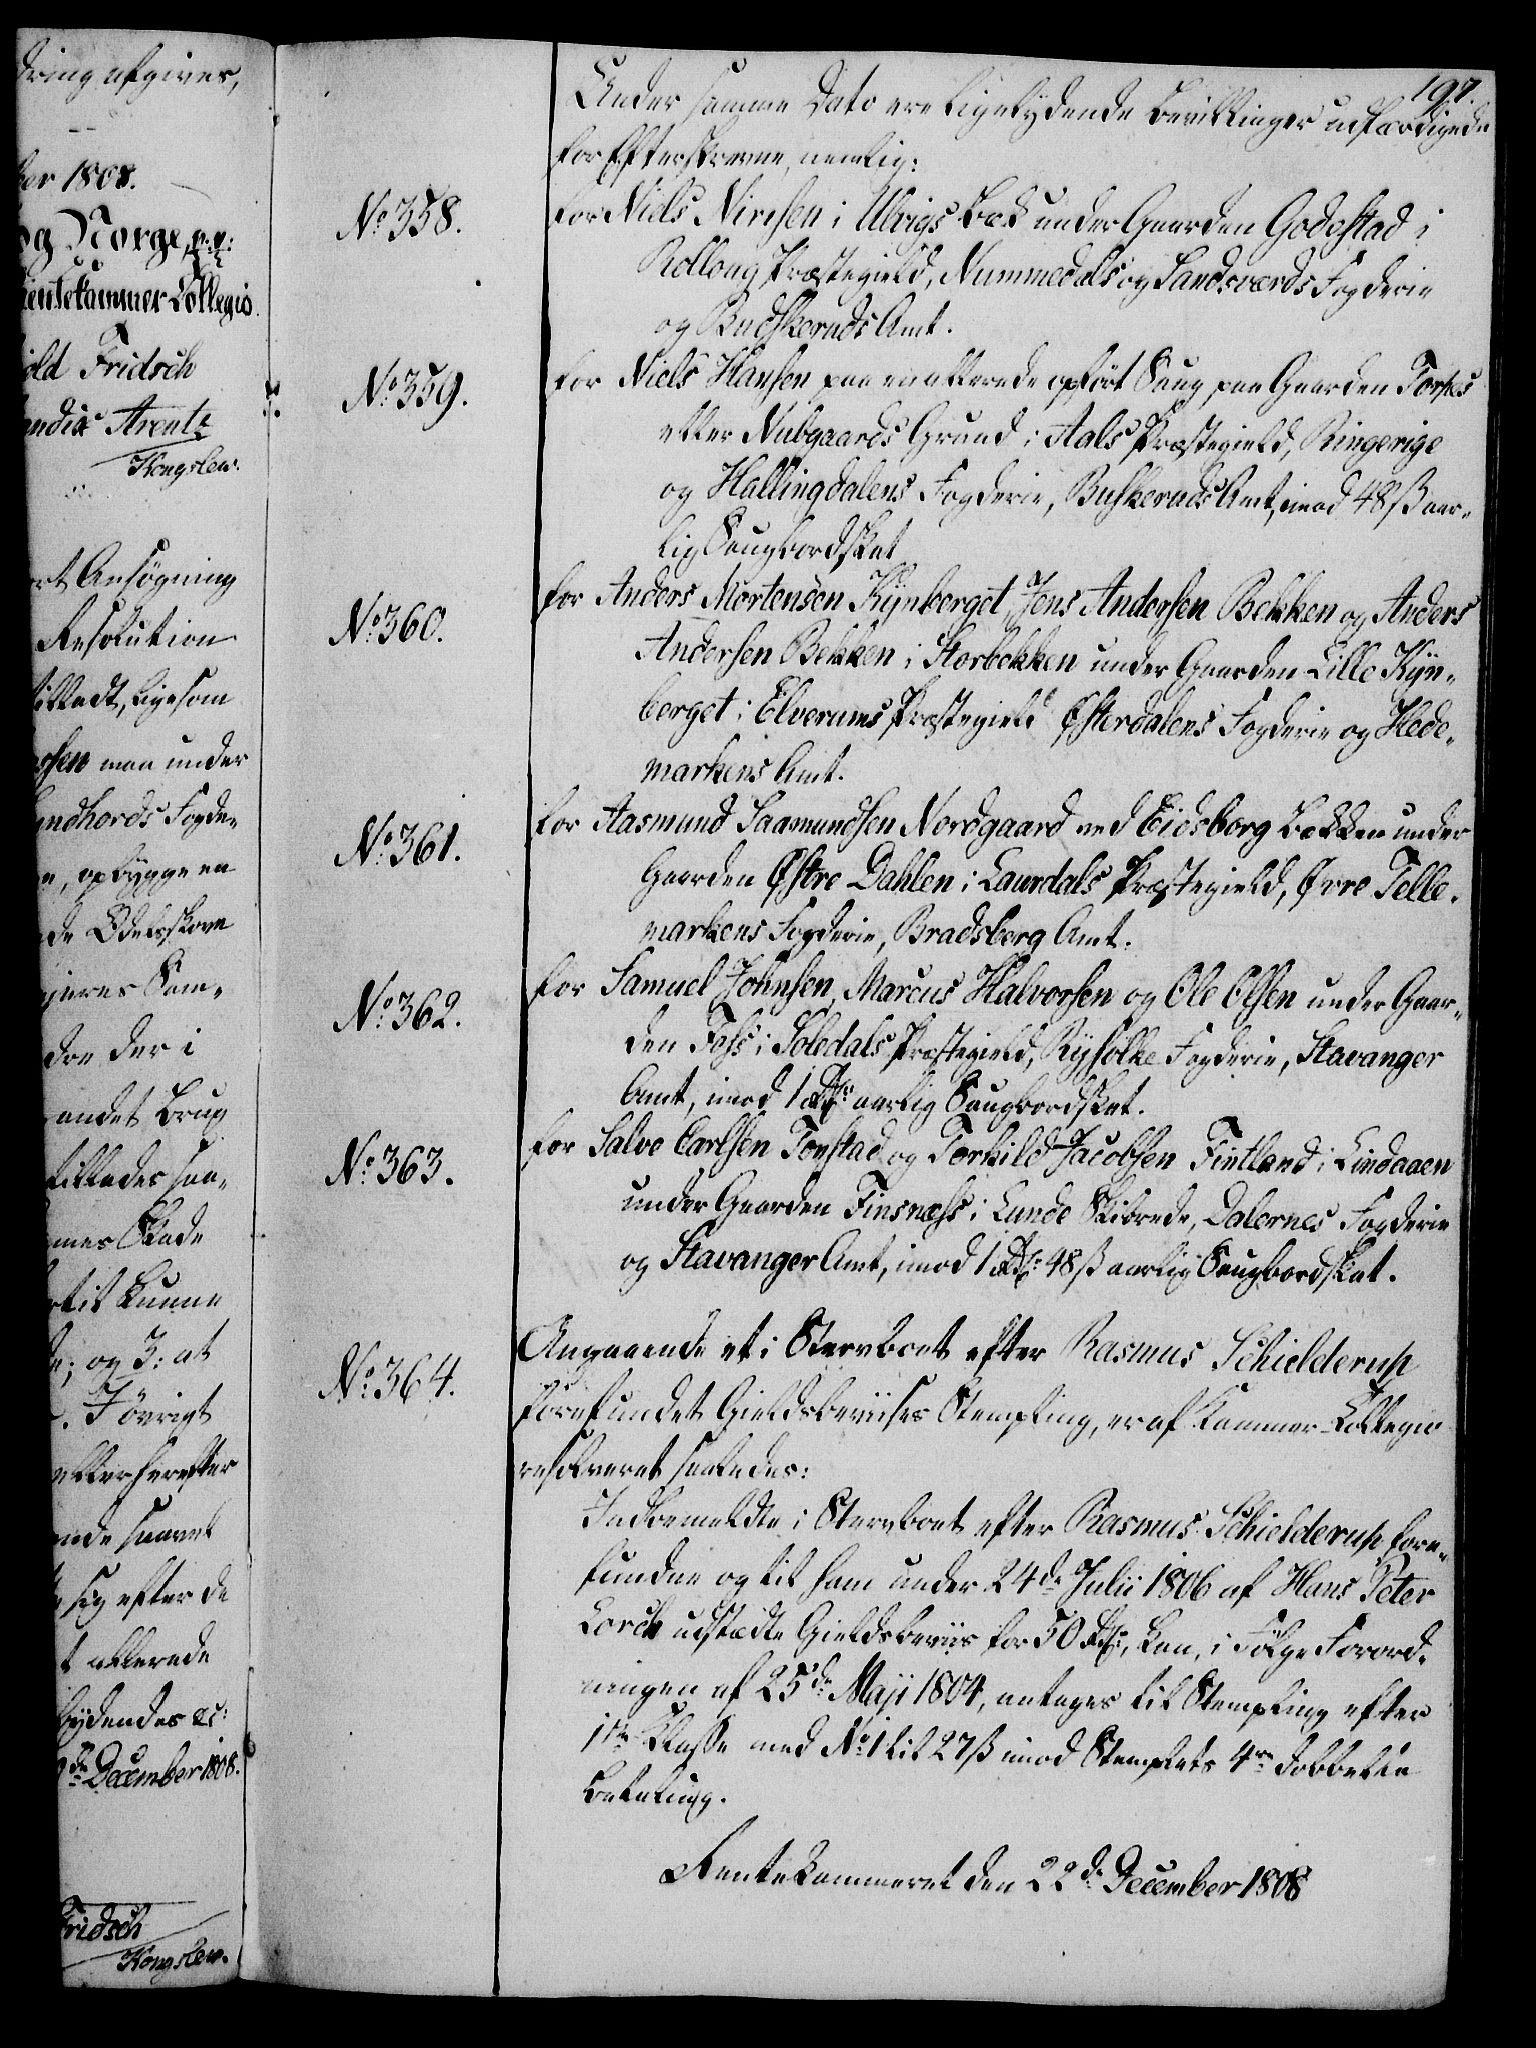 dring afgives,
ber 1808.
og Norge, p: p:
Rentekammer Collegio.
old Fridsch
andix Arentz
Kongslew.
ort Ansøgning
Resolution
tilladt, ligesom
rsen maa under
ndhords Fogde-
e, opbygge en
de Odelsskove
jeres Sam-
dre der i
andet Brug
tillades saa-
mes Skade
rtil kunne
e; og 3: at
. I øvrigt
eller herefter
ende saavel
sig efter de
t allerede
lydendes &c:
de December 1808.
Fridsch
Kongslew.
197.
Under samme Dato ere ligelydende Bevillinger udfærdigede
for Efterskrevne, nemlig:
No. 358. for Niels Nirisen i Ulvigs Bæk under Gaarden Godestad i
Rolloug Præstegield, Nummedals og Sandsværds Fogderie
og Budskeruds Amt.
No. 359. for Niels Hansen paa en allerede opført Saug paa Gaarden Torpes
eller Nubgaards Grund i Aals Præstegield, Ringerige
og Hallingdalens Fogderie, Buskeruds Amt, imod 48 ß aar-
lig Saugbordskat
No. 360. for Anders Mortensen Kynberget, Jens Andersen Bekken og Anders
Andersen Bekken i Storbekken under Gaarden Lille Kyn-
berget i Elverums Præstegield Østerdalens Fogderie og Hede-
markens Amt.
No. 361. for Aasmund Saamundsen Nordgaard ved Eidsborg Bækken under
Gaarden Østre Dahlen i Laurdals Præstegield, Øvre Telle-
markens Fogderie, Bradsberg Amt.
No. 362. for Samuel Johnsen, Marcus Halvorsen og Ole Olsen under Gaar-
den Foss i Soledals Præstegield, Ryfolke Fogderie, Stavanger
Amt, imod 1 Rdlr aarlig Saugbordskat.
No. 363. for Salve Carlsen Tonstad og Torkild Jacobsen Fintland i Lindaaen
under Gaarden Finsnæss i Lunde Skibrede, Dalernes Fogderie
og Stavanger Amt, imod 1 Rd: 48 ß aarlig Saugbordskat.
No. 364. Angaaende et i Stervboet efter Rasmus Schielderup
forefundet Gieldsbeviises Stempling, er af Kammer-Collegio
resolveret saaledes:
Indbemeldte i Stervboet efter Rasmus Schielderup fore-
fundne og til ham under 24de Julii 1806 af Hans Peter
Lorck udstædte Gieldsbeviis for 50 Rd:, kan, i Følge Forord-
ningen af 25de Maji 1804, antages til Stempling efter
1ste Klasse med No. 1 til 27 ß imod Stemplets 4re dobbelte
Betaling.
Rentekammeret den 22de December 1808